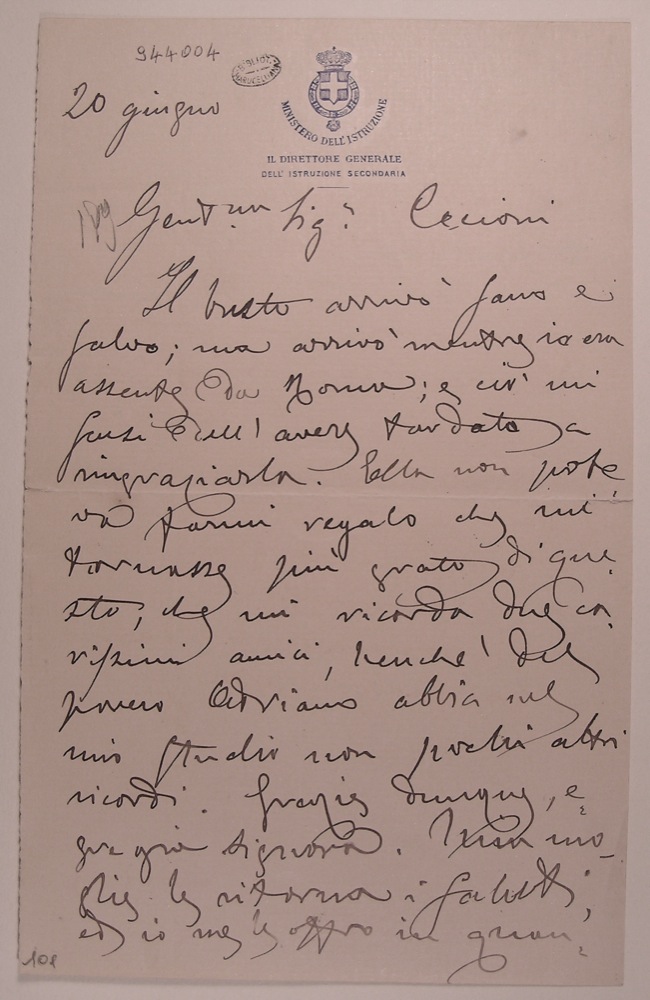 944004
BIBLIOT. MARUCELLIANA
20 giugno
MINISTERO DELL'ISTRUZIONE
IL DIRETTORE GENERALE
DELL'ISTRUZIONE SECONDARIA
189
Gent.ma Sig.ra Cecioni
Il busto arrivò sano e
salvo; ma arrivò mentre io era
assente da Roma; e ciò mi
scusi dell'avere tardato a
ringraziarla. Ella non pote
va farmi regalo che mi
tornasse più grato di que
sto, che mi ricorda due ca,
rissimi amici, benchè del
povero Adriano abbia nel
mio studio non pochi altri
ricordi. Grazie dunque, e,
gregia signora. Mia mo,
glie le ritorna i saluti,
ed io me le offro in quan,
101